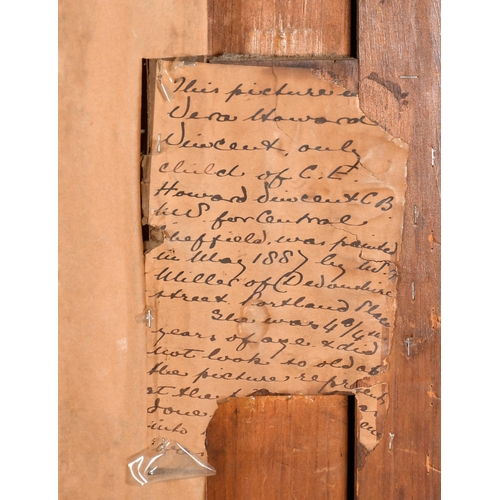 This picture
Vera Howard
Vincent, only
child of C.E.
Howard Vincent CB
for Central
Sheffield, was painted
in May 1887 by
Miller of Devonshire
street Portland Place
She was 4 3/4
years of age & did
not look so old as
the picture represents
at the
done
into